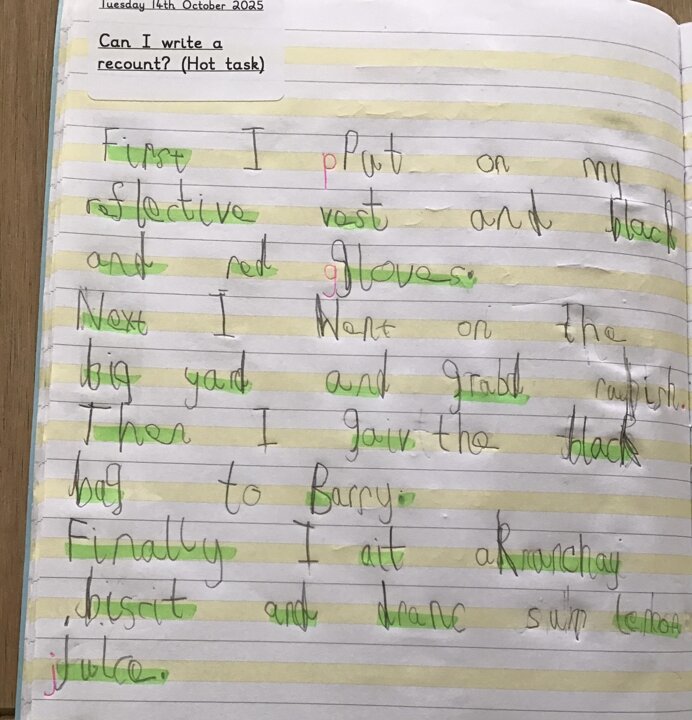 Tuesday 14th October 2025
Can I write a
recount? (Hot task)
First I pPut on my
reflective vest and black
and red ggloves.
Next I Went on the
big yard and grabd rapish.
Then I gaiv the black
bag to Barry.
Finally I ait a Krunchay
biscit and dranc sum lemon
jJuice.